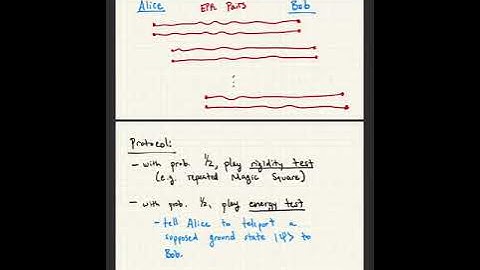 Alice EPR Pairs Bob
Protocol:
- with prob. 1/2, play rigidity test
(e.g. repeated Magic Square)
- with prob. 1/2, play energy test
- tell Alice to teleport a
supposed ground state |ψ> to
Bob.